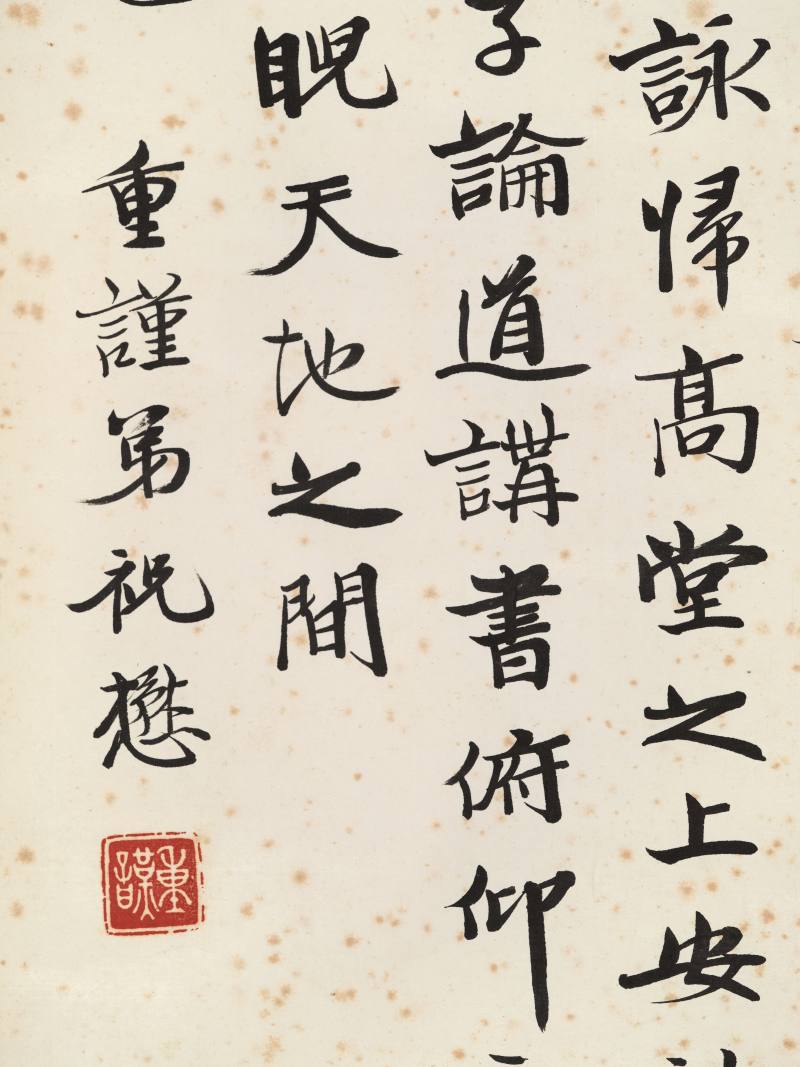 詠帰髙堂之上安
子論道講書俯仰
睨天地之間
重謹弟祝懋
重謹